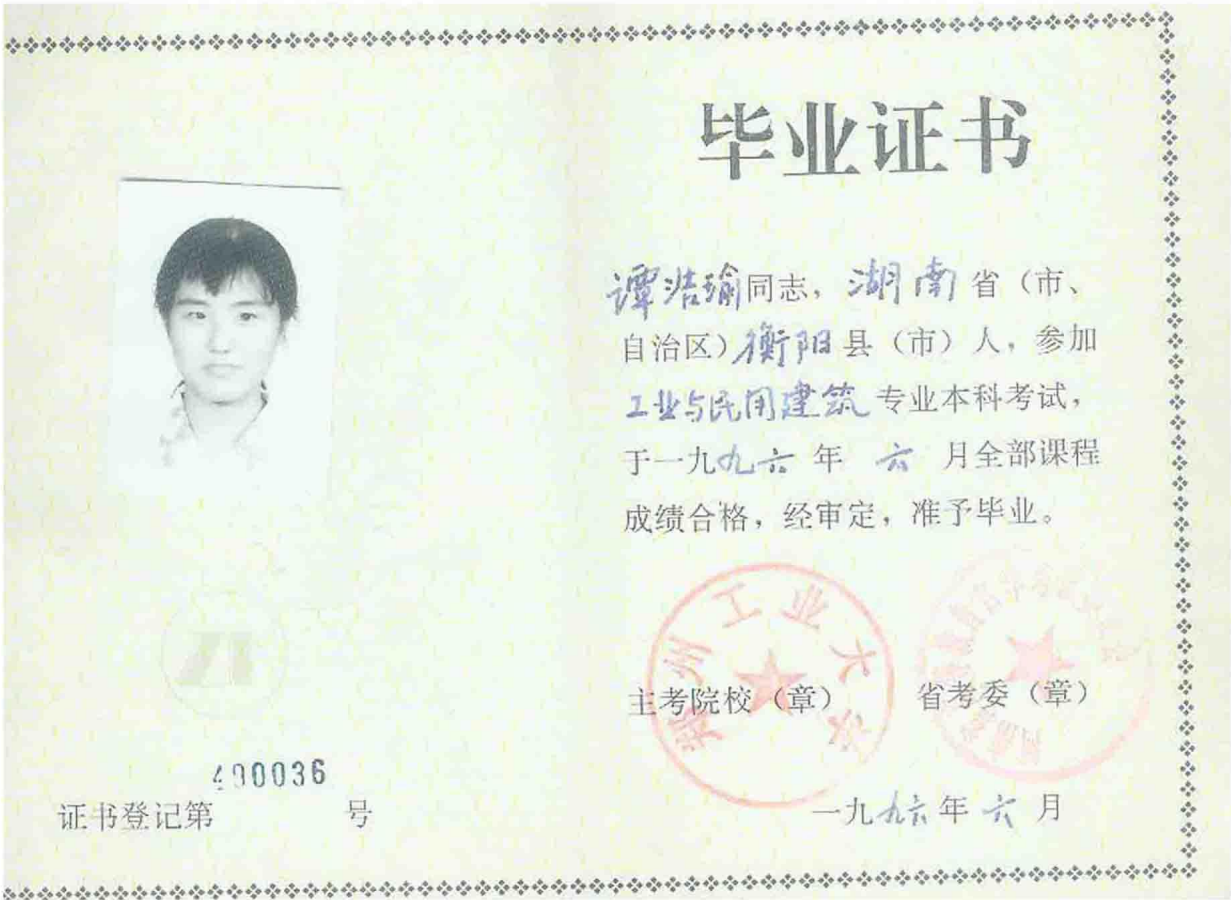 毕业证书
谭浩瑜同志，湖南省（市、
自治区）衡阳县（市）人，参加
工业与民用建筑专业本科考试，
于一九九六年 六 月全部课程
成绩合格，经审定，准予毕业。
郑州工业大学
主考院校（章） 省考委（章）
一九九六年六月
00036
证书登记第 号